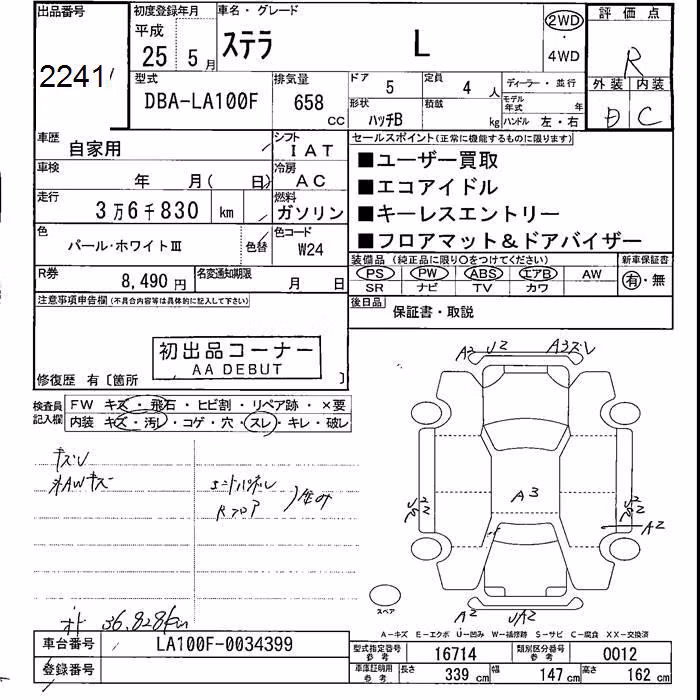 出品番号
2241
初度登録年月
平成
25 年 5 月
車名・グレード
ステラ L
2WD
・
4WD
評価点
R
外装 内装
D C
型式
DBA-LA100F
排気量
658 CC
ドア 5
定員 4 人
形状 ハッチB
積載 kg
ディーラー・並行
モデル年式 年
ハンドル 左・右
車歴 自家用
シフト IAT
車検 年 月( 日)
冷房 AC
走行 3万6千830 km
燃料 ガソリン
色 パール・ホワイトⅢ
色替
色コード W24
R券 8,490 円
名変通知期限 月 日
セールスポイント(正常に機能するものに限ります)
■ユーザー買取
■エコアイドル
■キーレスエントリー
■フロアマット&ドアバイザー
装備品(純正品に限り○をつけてください)
新車保証書
PS PW ABS エアB AW
SR ナビ TV カワ
有・無
後日品 保証書・取説
注意事項申告欄(不具合内容等は具体的に記入して下さい)
初出品コーナー
AA DEBUT
修復歴 有〔箇所 〕
検査員記入欄
FW キズ・飛石・ヒビ割・リペア跡・×要
内装 キズ・汚レ・コゲ・穴・スレ・キレ・破レ
キズU
AWキズ
Rフロア
オド 36,828km
A2 U2 A3キズU
A3
A2
A2 UA2
スペア
A-キズ E-エクボ U-凹み W-補修跡 S-サビ C-腐食 XX-交換済
車台番号 LA100F-0034399
登録番号
型式指定番号 参考 16714
類別区分番号 参考 0012
車庫証明用 参考 長さ 339 cm 幅 147 cm 高さ 162 cm